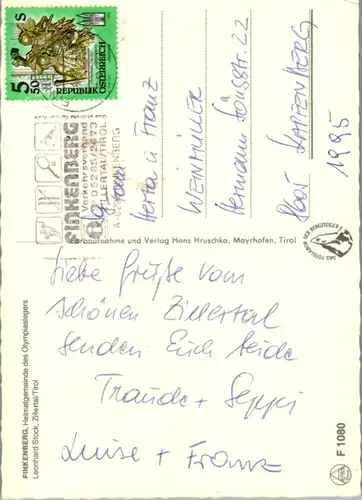 5 50
S
REPUBLIK ÖSTERREICH
FINKENBERG
Verkehrsverband
05285/2673
ZILLERTAL/TIROL
FINKENBERG
Fam.
Herta u Franz
WEINMÜLLER
Hermann Lönsstr. 22
8605 KAPFENBERG
1995
Farbaufnahme und Verlag Hans Hruschka, Mayrhofen, Tirol
Liebe Grüße vom
schönen Zillertal
senden Euch beide
Traude + Seppi
Luise + Franz
FINKENBERG, Heimatgemeinde des Olympiasiegers
Leonhard Stock, Zillertal/Tirol
F 1080